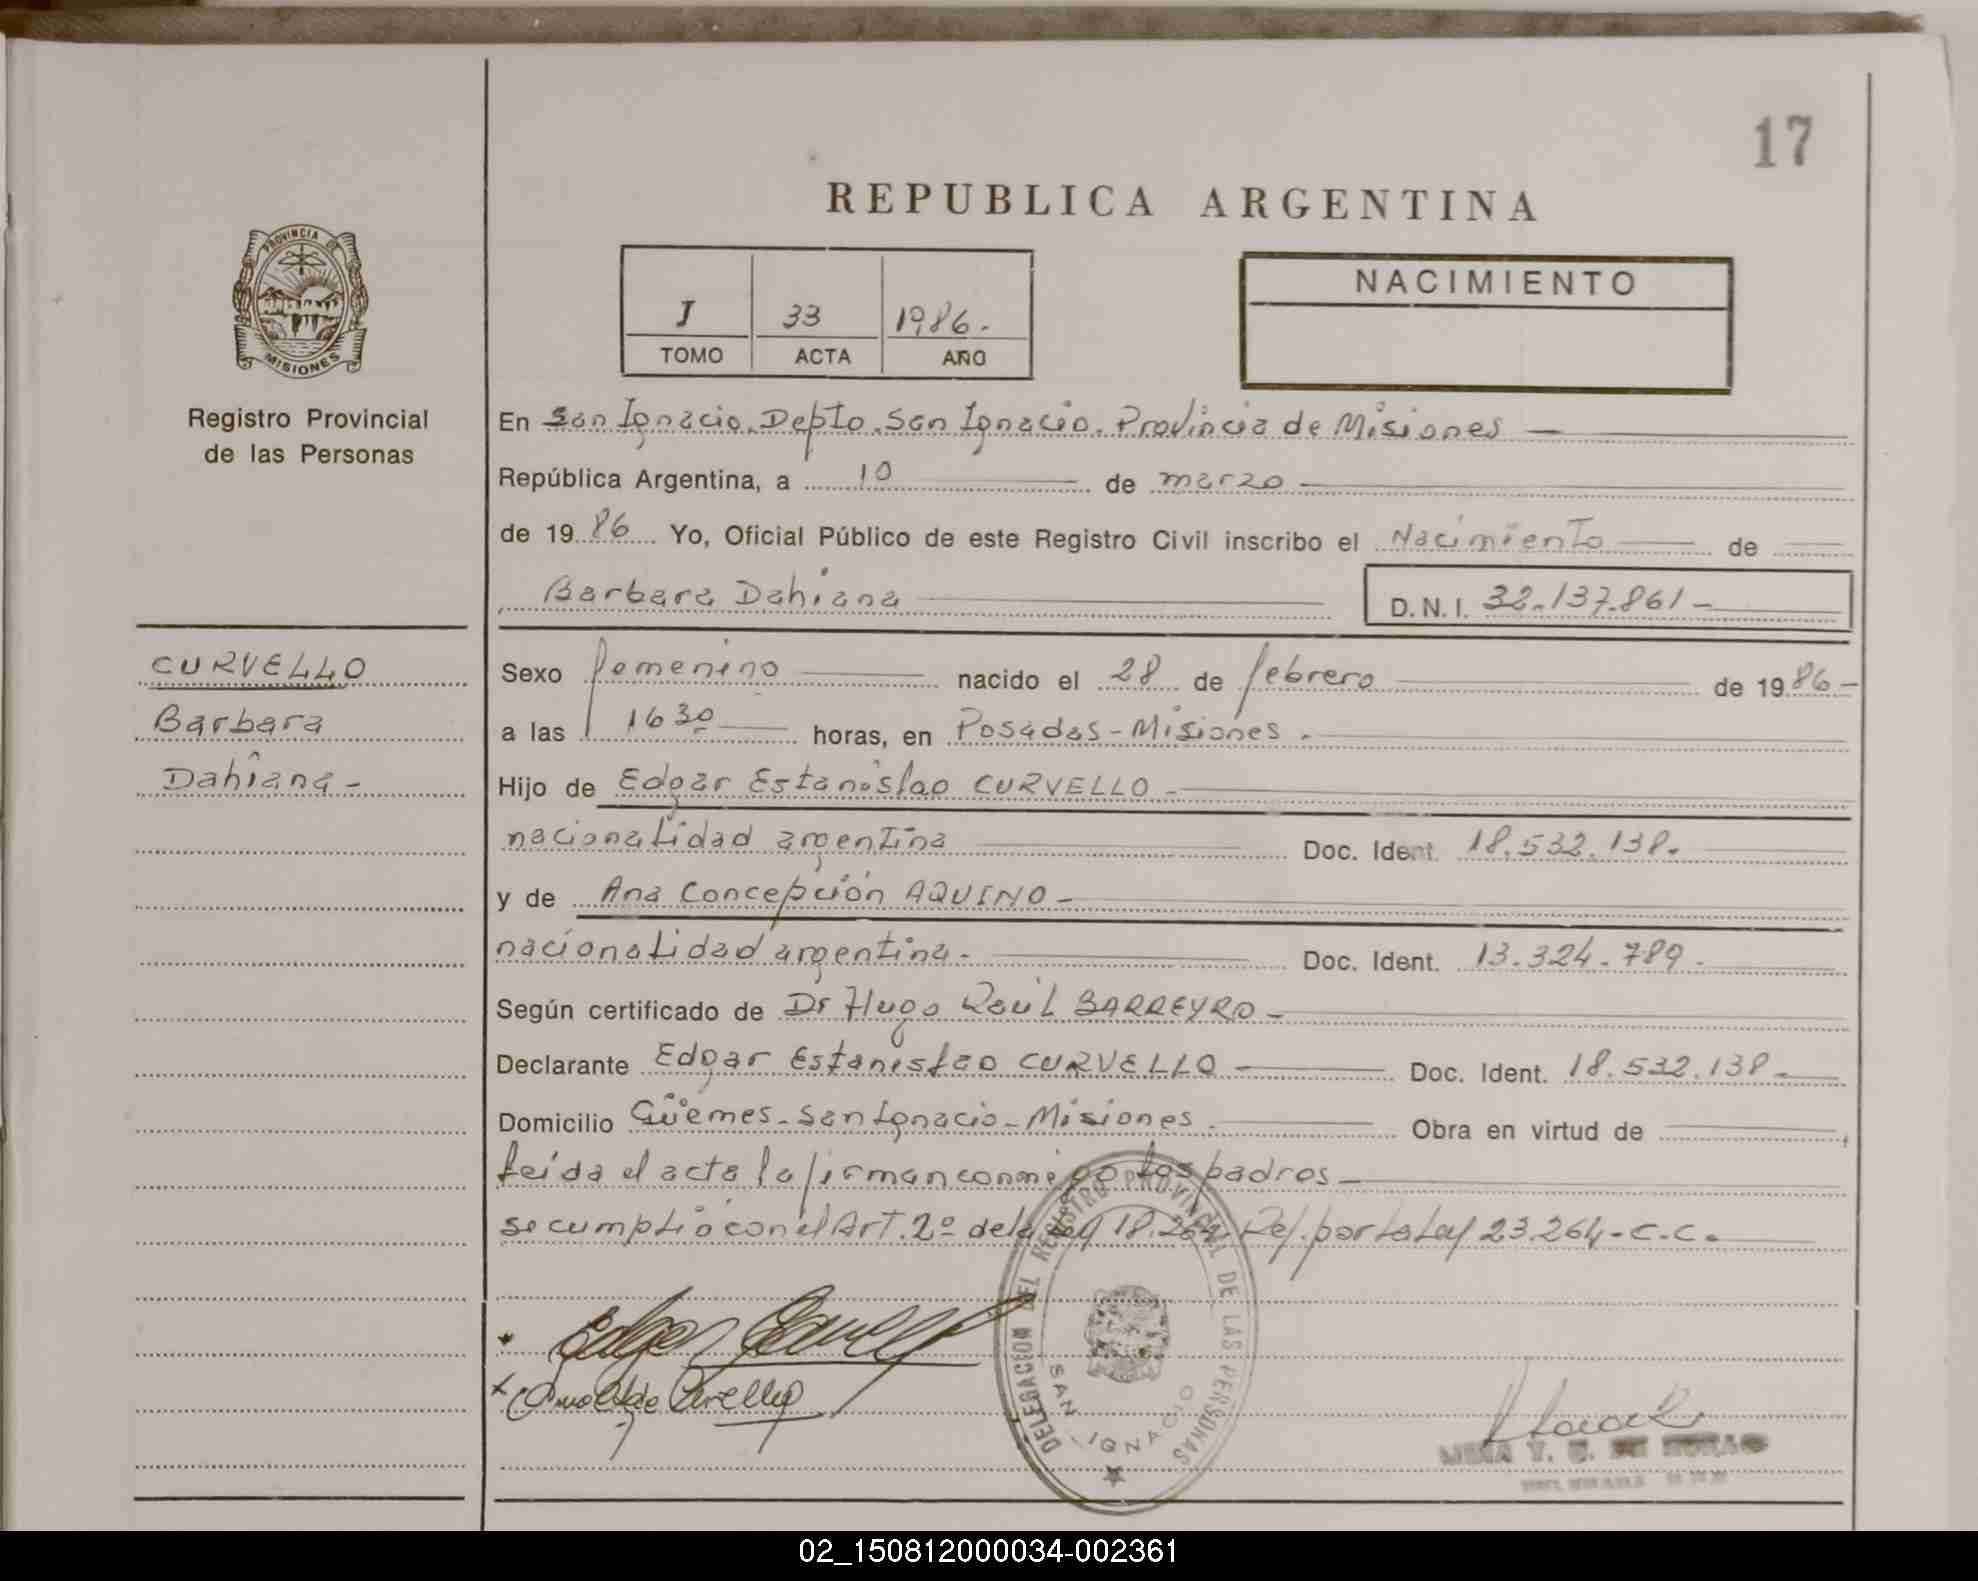 17
REPUBLICA ARGENTINA
PROVINCIA DE
MISIONES
Registro Provincial
de las Personas
I 33 1986.-
TOMO ACTA AÑO
NACIMIENTO
En San Ignacio. Depto. San Ignacio. Provincia de Misiones —
República Argentina, a 10 de marzo
de 19 86 Yo, Oficial Público de este Registro Civil inscribo el Nacimiento de
Barbara Dahiana D.N.I. 32.137.861-
CURVELLO
Barbara
Dahiana-
Sexo femenino nacido el 28 de febrero de 19 86-
a las 16 30 horas, en Posadas-Misiones.
Hijo de Edgar Estanislao CURVELLO-
nacionalidad argentina Doc. Ident. 18.532.138.
y de Ana Concepción AQUINO-
nacionalidad argentina. Doc. Ident. 13.324.789.
Según certificado de Dr Hugo Raúl BARREYRO-
Declarante Edgar Estanislao CURVELLO- Doc. Ident. 18.532.138-
Domicilio Güemes-San Ignacio-Misiones. Obra en virtud de
leída el acta la firman conmigo los padres
se cumplió con el Art. 2º de la ley 18.264 Ref. por la Ley 23.264-C.C.
DELEGACION DEL REGISTRO PROVINCIAL DE LAS PERSONAS
SAN IGNACIO
Edgar
02_150812000034-002361